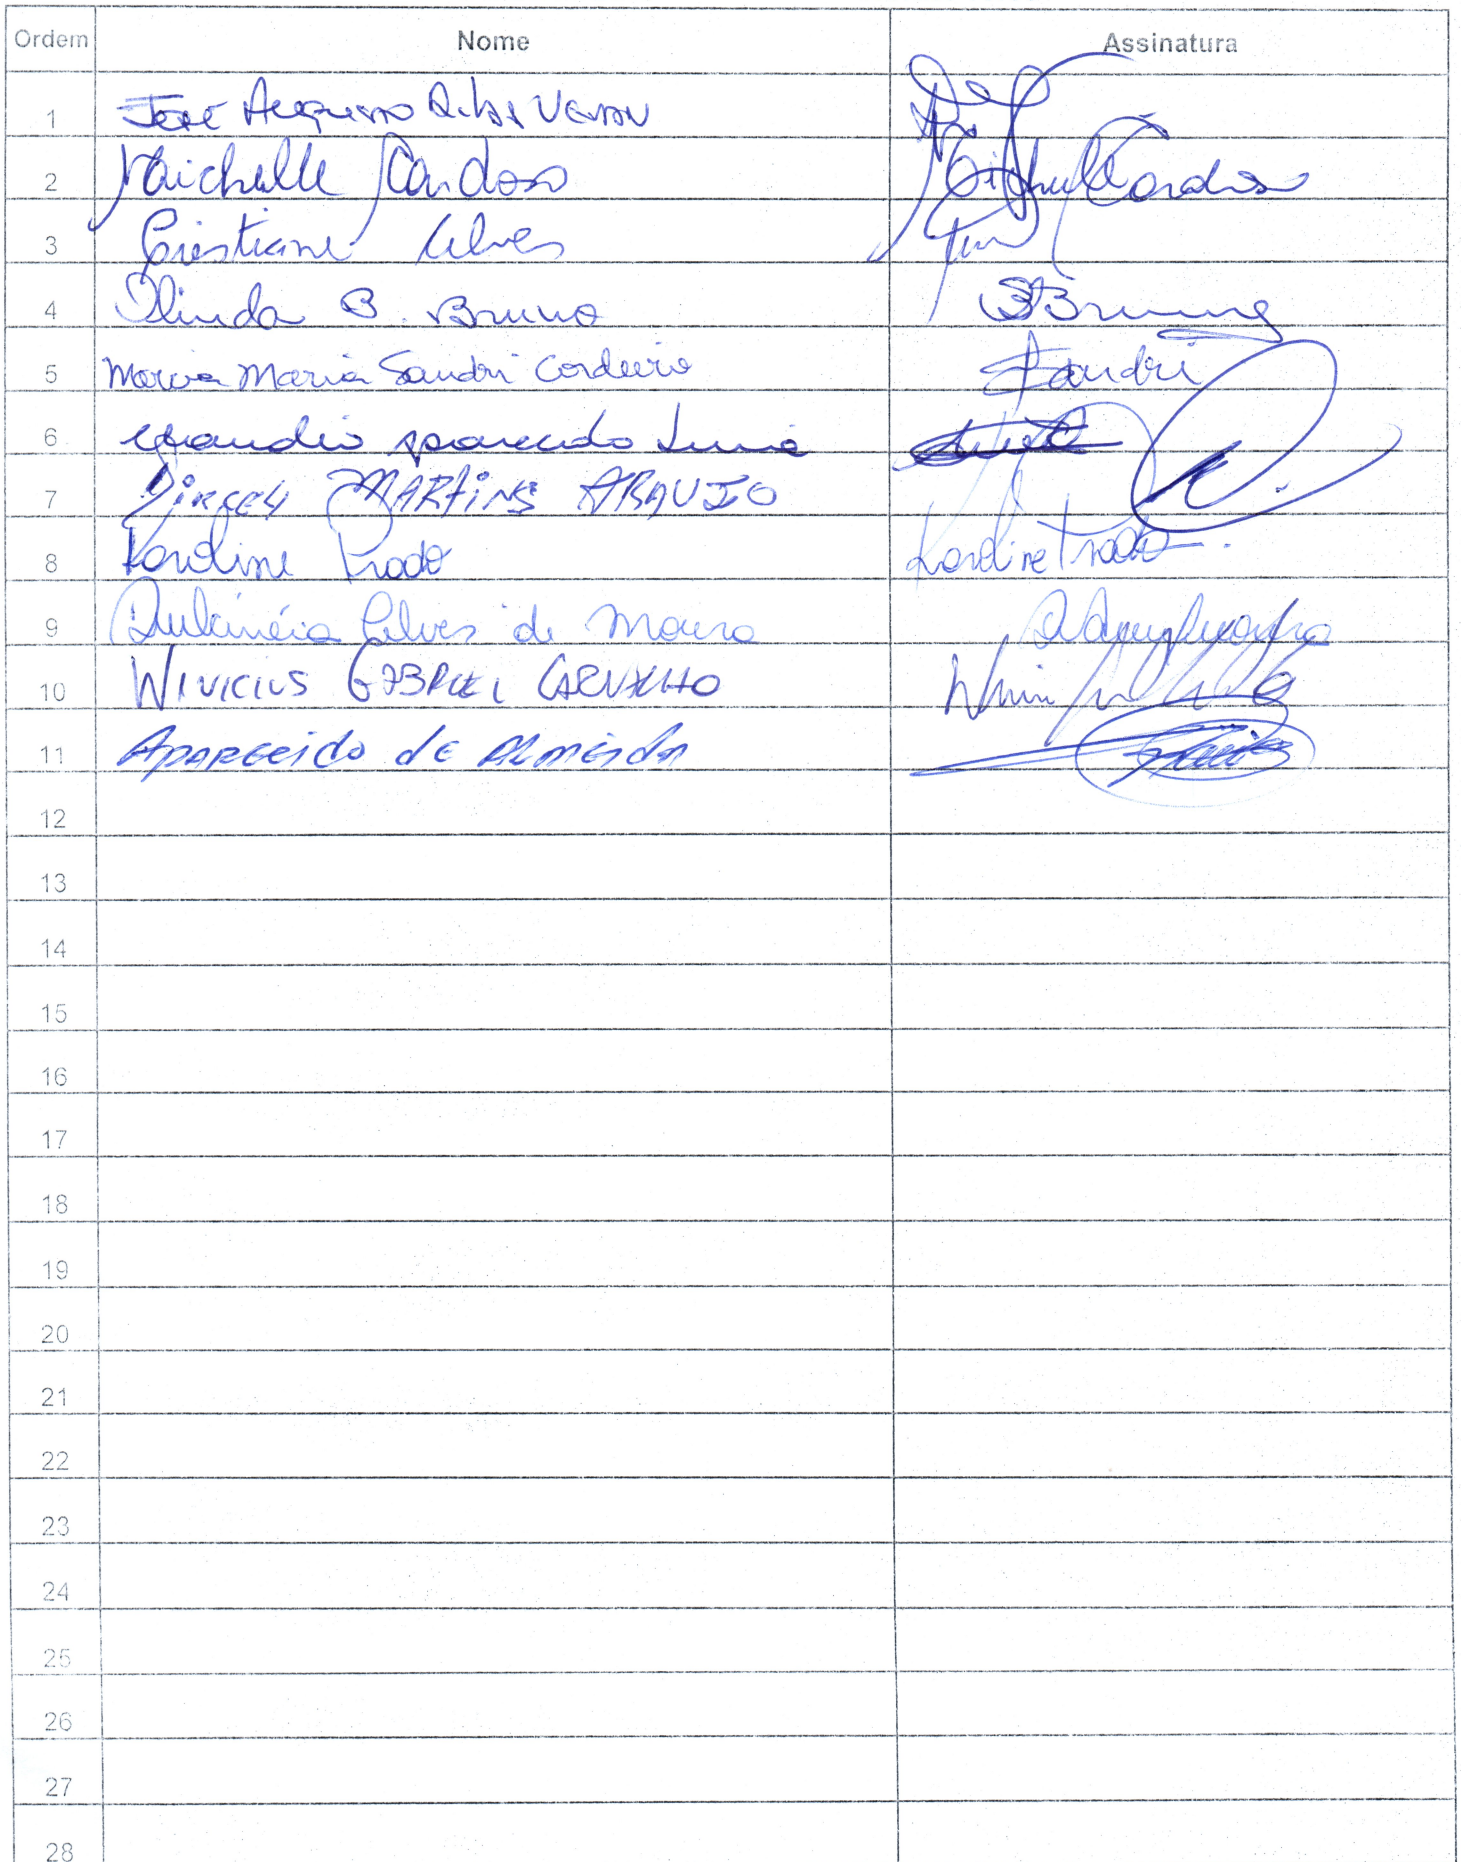 Ordem Nome Assinatura
1 José
2 Maichelle Cardoso Cardoso
3 Cristiane Alves
4 Olinda B. Bruno Bruno
5 Marcia Maria Sandri Cordeiro Sandri
6 aparecido
7 MARTINS ARAUJO
8 Karoline Prado Karoline Prado
9 Dulcinéia Alves de Moura
10 WINICIUS GABRIEL CARVALHO
11 APARECIDO de ALMEIDA
12
13
14
15
16
17
18
19
20
21
22
23
24
25
26
27
28